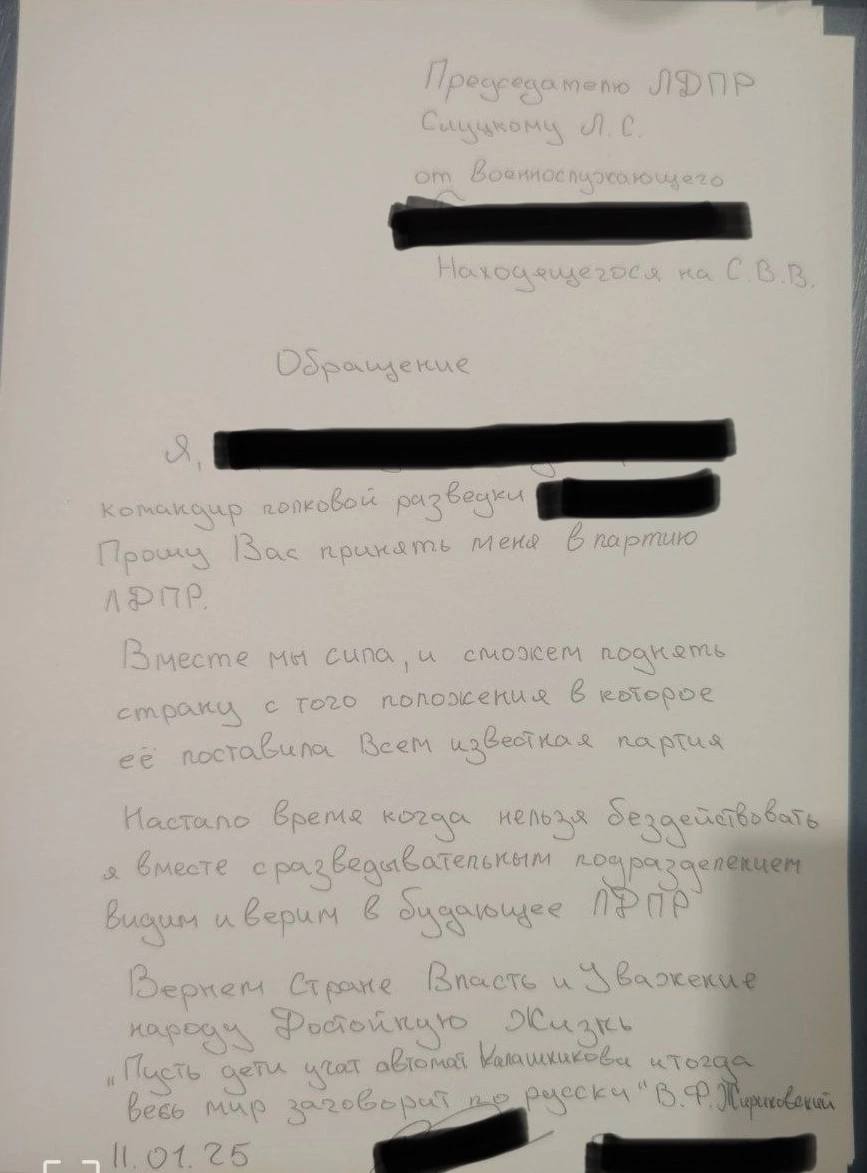 Председателю ЛДПР
Слуцкому Л.С.
от Военнослужающего
Находящегося на С.В.В.
Обращение
Я,
командир полковой разведки
Прошу Вас принять меня в партию
ЛДПР.
Вместе мы сила, и сможем поднять
страну с того положения в которое
её поставила Всем известная партия
Настало время когда нельзя бездействовать
я вместе с разведывательным подразделением
видим и верим в будающее ЛДПР
Вернем Стране Власть и Уважение
народу Достойную Жизнь
"Пусть дети учат автомат Калашникова и тогда
весь мир заговорит по русски" В.Ф.Жириковский
11.01.25